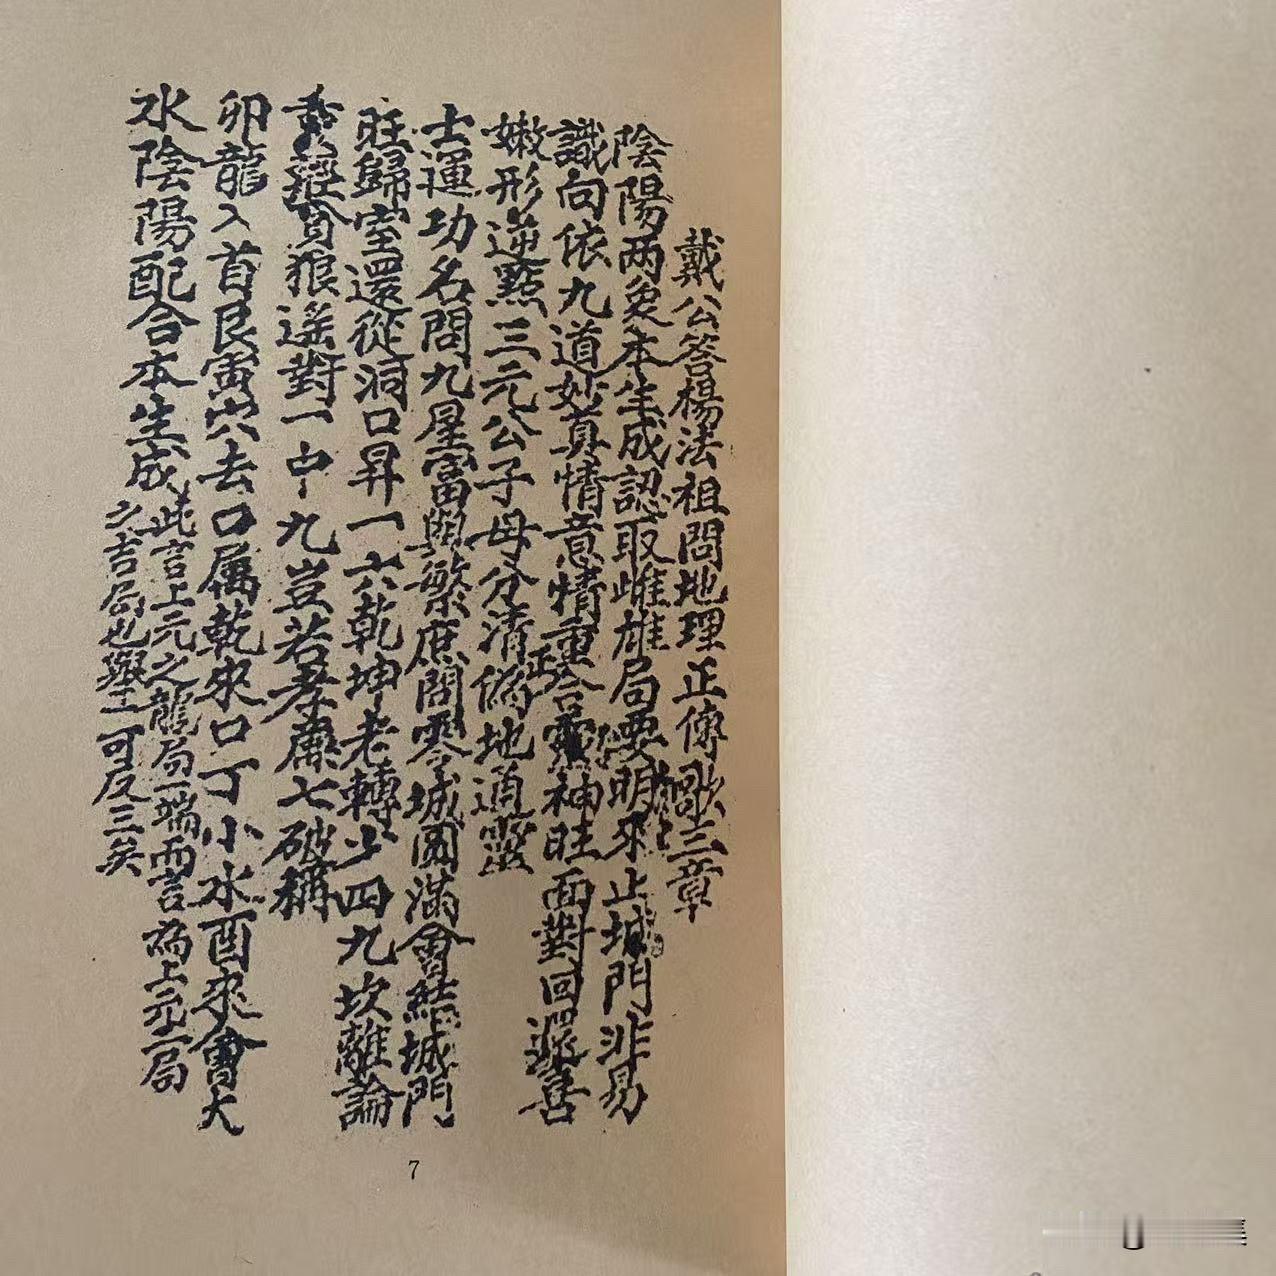 戴公答楊法祖問地理正傳歌三章
陰陽两象本生成認取雌雄局要明來止城門非易
識向依九道妙真情意情重合靈神旺面對回還喜
嫩形逆點三元公子母分清偽地通靈
士運功名問九星富與繁庶問零城圓滿會結城門
旺歸室還從洞口昇一六乾坤老轉少四九坎離論
貪狼遥對一中九豈若孝廉七破稱
卯龍入首艮寅穴去口属乾來口丁小水酉來會大
水陰陽配合本生成
此言上元之龍局一端而言為上元一局
之吉局也舉一可反三矣
7